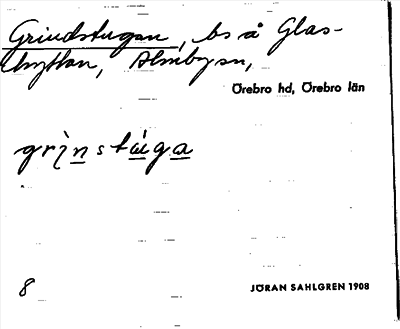 Grindstugan, bs å Glas-
hyttan, Almbysn,
Örebro hd, Örebro län
grìnstúga
8
JÖRAN SAHLGREN 1908